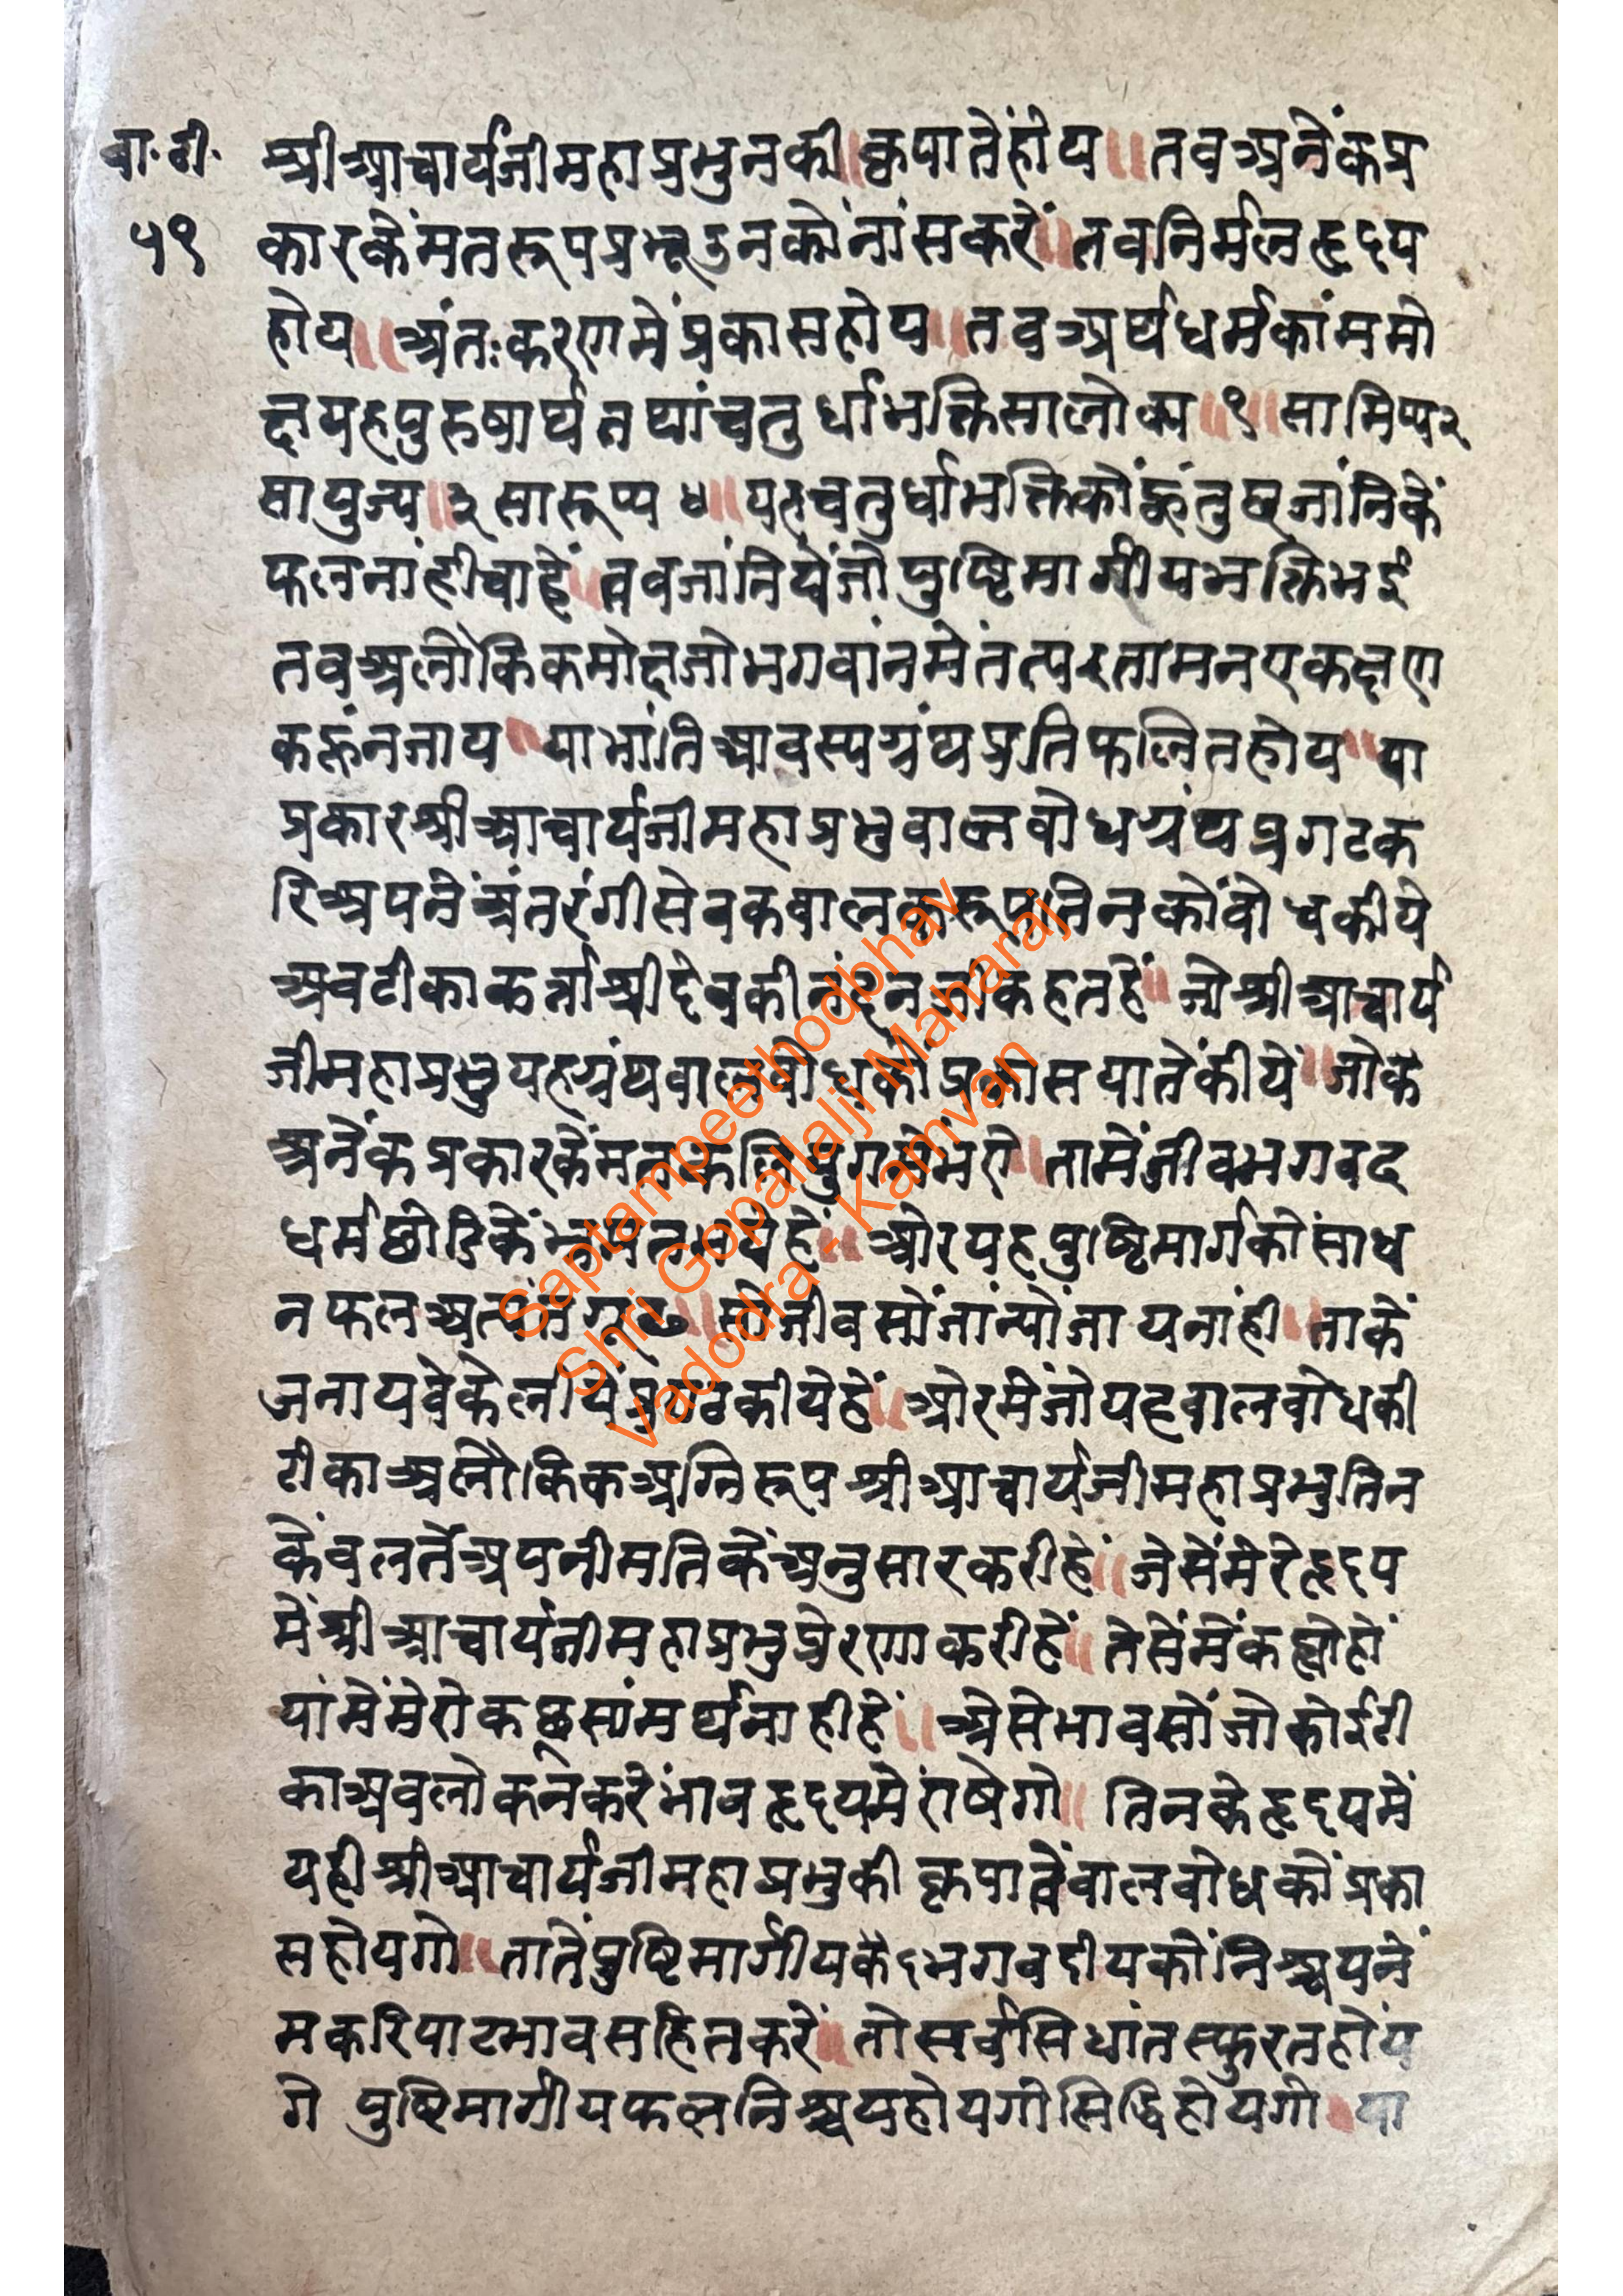 बा.टी. श्रीआचार्यजीमहाप्रभुनकी॥कृपातेंहोय॥तवअनेंकप्र
५९ कारकेंमतरूपप्रभूउनकोंनांसकरें॥तवनिर्मलहृदय
होय॥अंतःकरणमेंप्रकासहोय॥तवअर्थधर्मकांममो
क्षयहपुरुषार्थतथांचतुर्धाभक्तिसालोक्य॥१॥सामिप्य२
सायुज्य॥३सारूप्य४॥यहचतुर्धाभक्तिकोंहूंतुछजांनिकें
फलनांहीचाहें॥तवजांनियेंजोपुष्टिमार्गीयभक्तिभई
तवअलौकिकमोक्षजोभगवांनमेंतत्परतामनएकक्षण
कहूंनजाय॥याभांतिआवस्यग्रंथप्रतिफलितहोय॥या
प्रकारश्रीआचार्यजीमहाप्रभुवालवोधग्रंथप्रगटक
रिअपनेंअंतरंगीसेवकवालकरूपतिनकोंवोधकीये
अवटीकाकर्त्ताश्रीदेवकीनंदनजीकहतहें॥जोश्रीआचार्य
जीमहाप्रभुयहग्रंथवालवोधकोंप्रकासयातेंकीयें॥जोकै
अनेंकप्रकारकेंमतकलियुगमेंभरो॥तामेंजीवभगवद
धर्मछोडिकेंभ्रमितभयेहें॥ओरयहपुष्टिमार्गकोसाध
नफलअत्यंतगूढ॥सोजीवसोंजांन्योंजायनांही॥ताकें
जनायवेकेलीयेंप्रगटकीयेहें॥ओरमेंजोयहवालवोधकी
टीकाअलौकिकअग्निरूपश्रीआचार्यजीमहाप्रभुतिन
केंवलतेंअपनीमतिकेंअनुसारकरीहें॥जेसेंमेरेहृदय
मेंश्रीआचार्यजीमहाप्रभुप्रेरणाकरीहें॥तेसेंमेंकह्योहों
यांमेंमेरोकछुसांमर्थनाहीहें॥ऐसेभावसोंजोकोईटी
काअवलोकनकरेंभावहृदयमेंराषेगो॥तिनकेहृदयमें
यहीश्रीआचार्यजीमहाप्रभुकीकृपातेंवालवोधकोंप्रका
सहोयगो॥तातेंपुष्टिमार्गीयकैदभगवदीयकोंनिश्चयनें
मकरिपाटभावसहितकरें॥तोसर्वसिधांतस्फुरतहोय
गे पुष्टिमार्गीयफलनिश्चयहोयगोसिद्धिहोयगो॥या
Saptampeethodbhav
Shri Gopallalji Maharaj
Vadodra - Kamvan